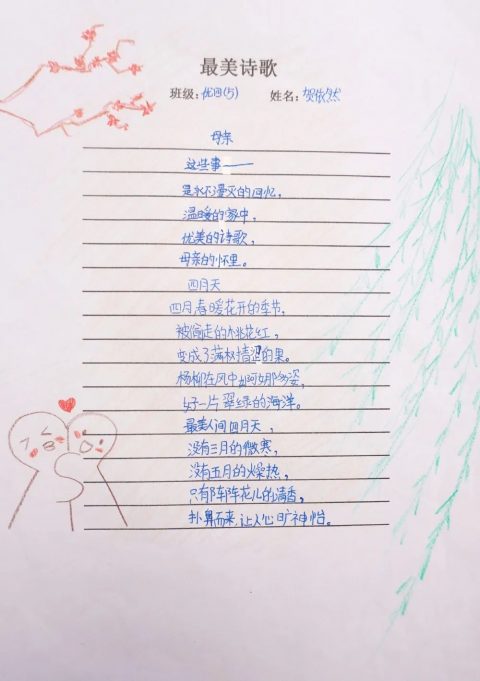 最美诗歌
班级：优四(5) 姓名：贺依然
母亲
这些事——
是永不漫灭的回忆，
温暖的家中，
优美的诗歌，
母亲的怀里。
四月天
四月，春暖花开的季节，
被偷走的桃花红，
变成了满树青涩的果。
杨柳在风中婀娜多姿，
好一片翠绿的海洋。
最美人间四月天，
没有三月的微寒，
没有五月的燥热，
只有阵阵花儿的清香，
扑鼻而来，让人心旷神怡。